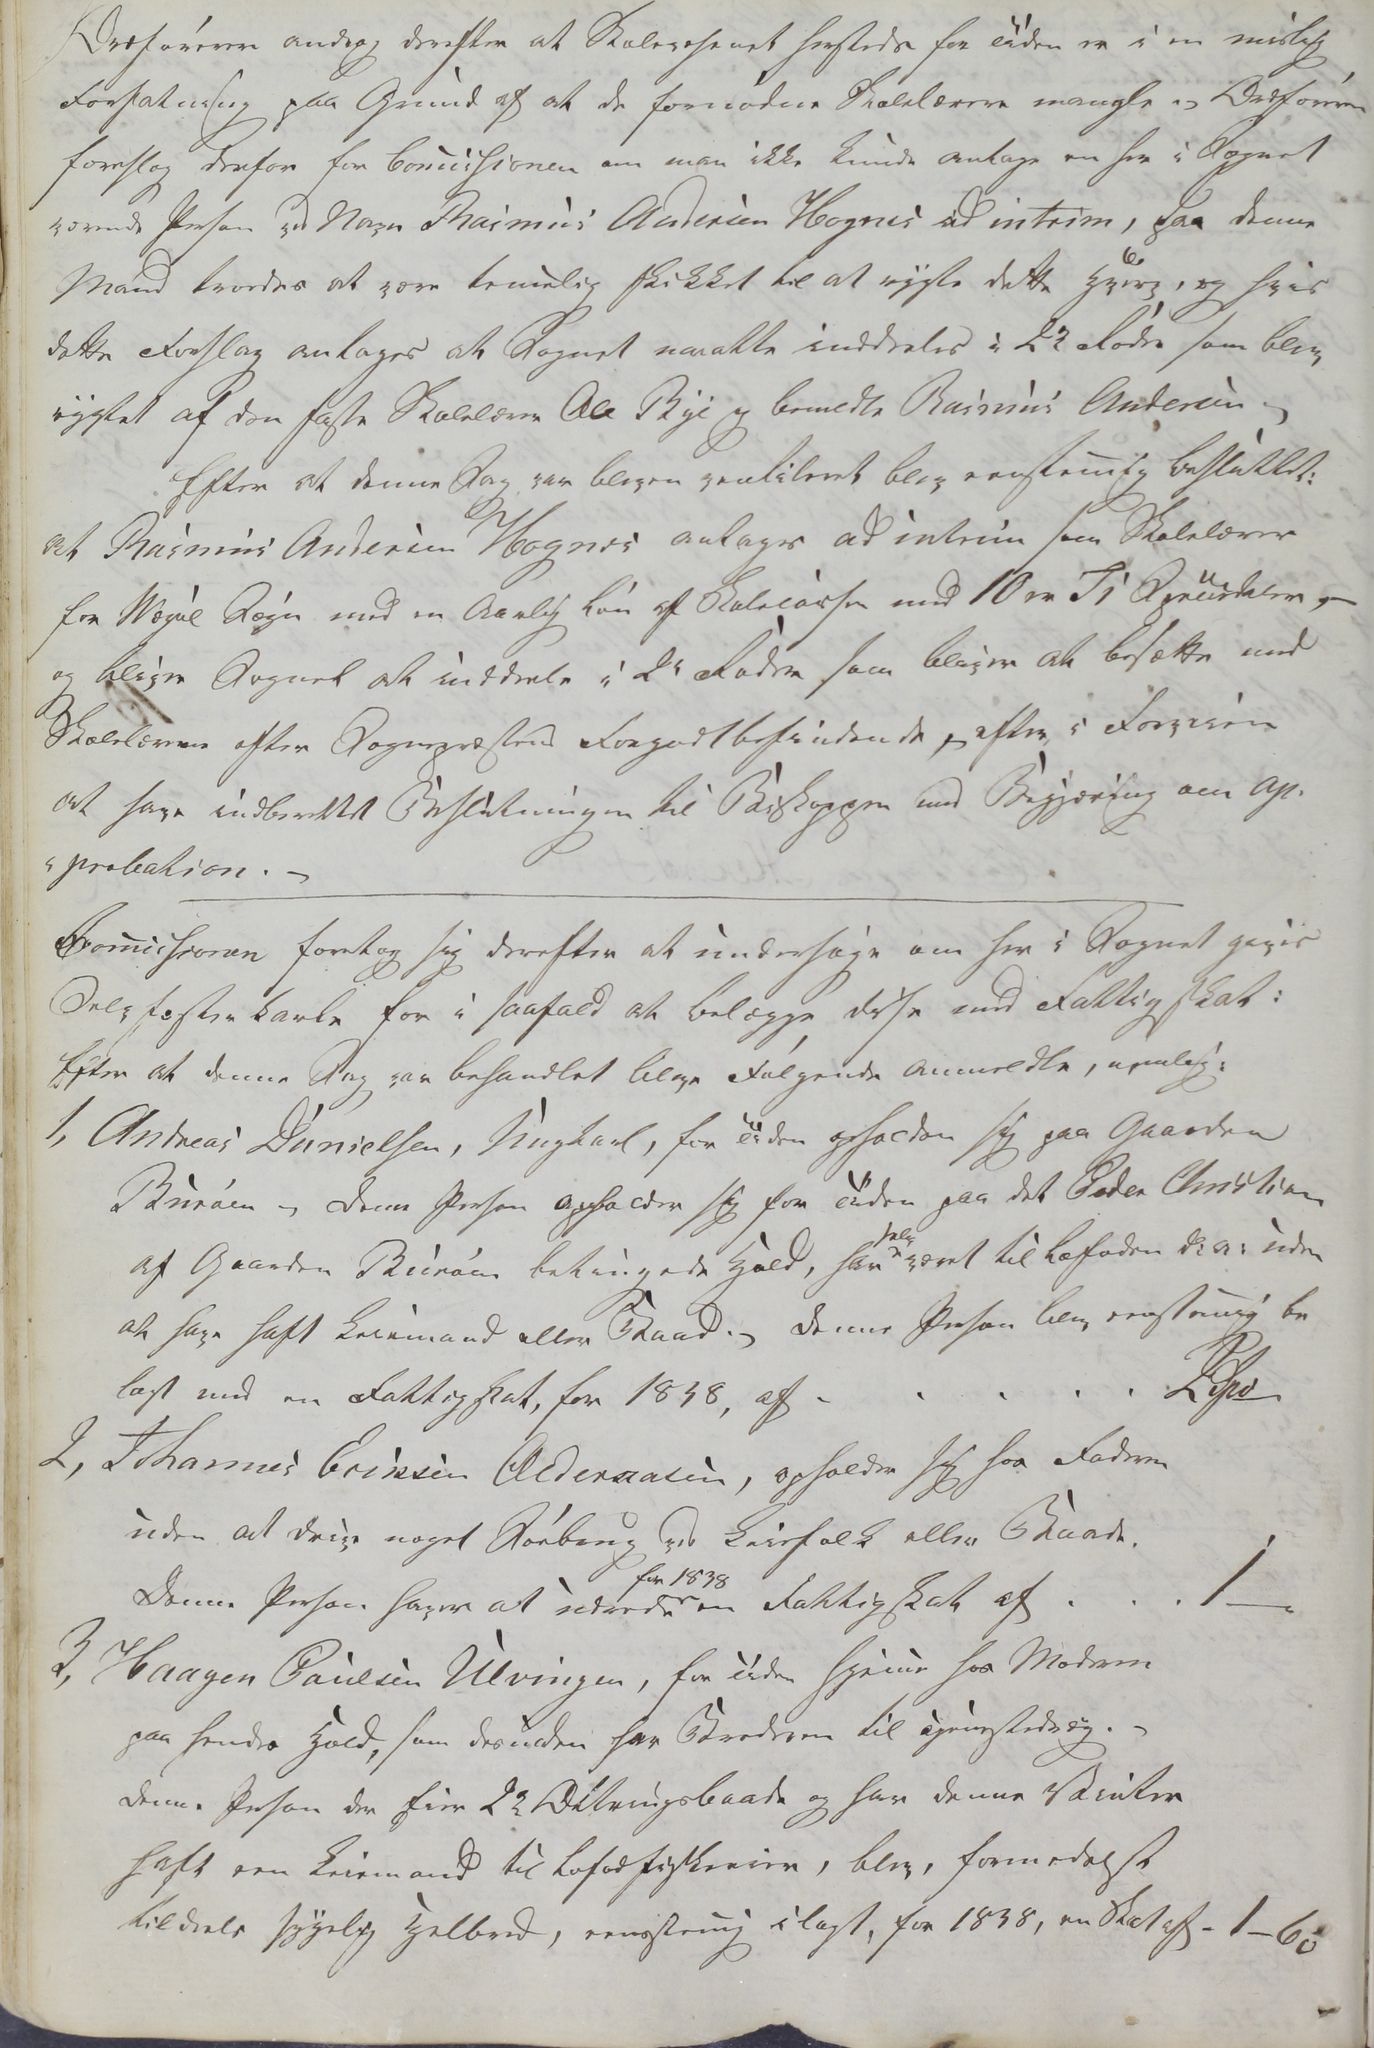 Ordføreren androg derefter at Skolevæsenet hersteds for Tiden er i en mislig
Forfatning paa Grund af at de fornødne Skolelærere mangle – Ordføreren
foreslog derfor for Comissionen om man ikke kunde antage en her i Sognet
værende Person ved Navn Rasmus Andersen Hognes ad intrim, paa denne
Mand troedes at være temelig skikket til at røgte dette Hverv, og hvis
dette Forslag antages at Sognet maatte inddeeles i 2de Roder som blev
røgtet af den faste Skolelærer Ole Bye og bemeldte Rasmus Andersen –
Efter at denne Sag var bleven ventileret blev eenstemig besluttet:
at Rasmus Andersen Hognes antages ad interim som Skolelærer
for Sogn med en Aarlig Løn af Skolecassen med 10 er Ti Speciedaler, –
og bliver Sognet at inddeele i 2de Roder som bliver at besætte med
Skolelærere efter Sognepræstens Forgodtbefindende, efter i Forveien
at have indberettet Beslutningen til Biskoppen med Begjæring om Ap-
probation. –
Comissionen foretog sig derefter at undersøge om her i Sognet gives
Selvfosterkarle for i saafald at belægge disse med Fattigskat:
Efter at denne Sag var behandlet bleve Følgende anmeldte, nemlig:
1, Andreas Danielsen, Ungkarl, for Tiden opholdende sig paa Gaarden
Burøen – denne Person opholder sig for Tiden paa det Peder Christian
af Gaarden Burøen betingede Hold, har selv været til Lofoden d: A: uden
at have haft Leiemand eller Baad. – Denne Person blev eenstemig be
lagt med en Fattigskat, for 1838, af - . . . . . 2 Spd
2, Johannes Eriksen Oldernæsen, opholder sig hos Faderen
uden at drive noget Søebrug ved Leiefolk eller Baade.
Denne Person haver at udrede for 1838 en Fattigskat af . . . 1 –
3, Haagen Paulsen Ulvingen, for Tiden hjeme hos Moderen
paa hendes Hold, som desuden har Broderen til Tjenestedreng. –
denne Person der Eier 2de Ottringsbaade og har denne Vinter
haft een Leiemand til Lofodfiskeriet, blev, formedelst
tildeels sygelig Helbred, eenstemig ilagt, for 1838, en Skat af - 1 – 60